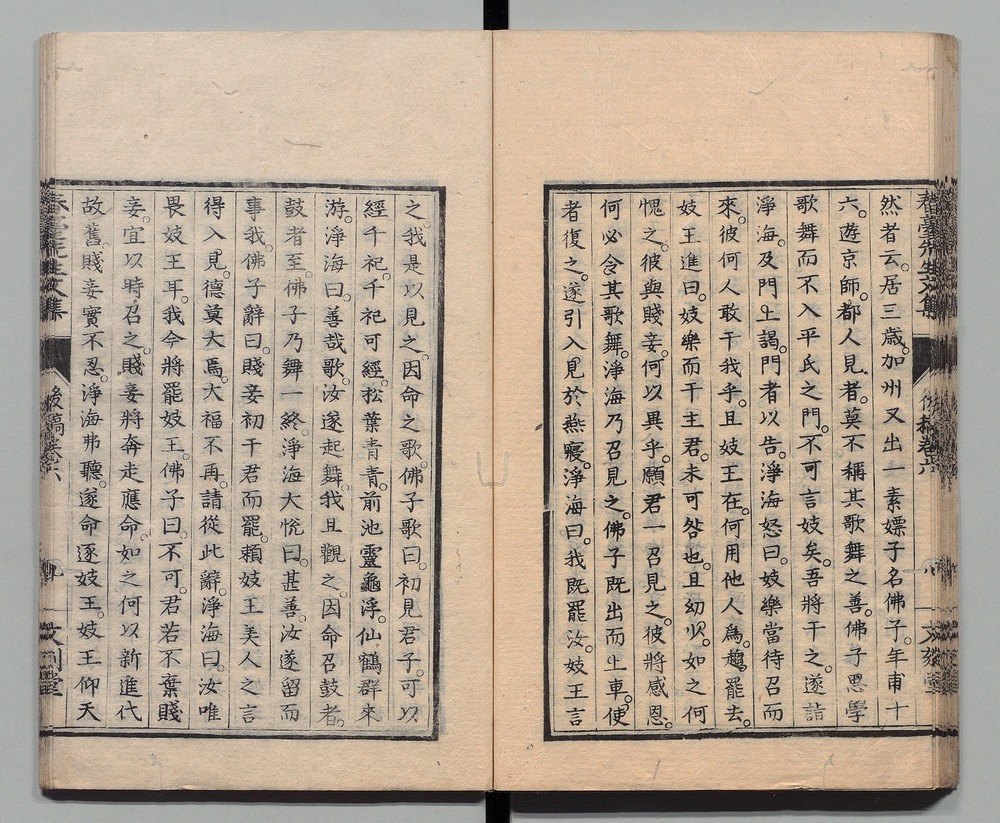 然者云。居三歳。加州又出一素嫖子名佛子。年甫十
六。遊京師。都人見者。莫不稱其歌舞之善。佛子思學
歌舞而不入平氏之門。不可言妓矣。吾將干之。遂詣
淨海。及門上謁。門者以告。淨海怒曰。妓樂當待召而
來。彼何人敢干我乎。且妓王在。何用他人爲。趨罷去。
妓王進曰。妓樂而干主君。未可咎也。且幼少。如之何
愧之。彼與賤妾。何以異乎。願君一召見之。彼將感恩。
何必令其歌舞。淨海乃召見之。佛子既出而上車。使
者復之。遂引入見於燕寢。淨海曰。我既罷汝。妓王言
之。我是以見之。因命之歌。佛子歌曰。初見君子。可以
經千祀。千祀可經。松葉青青。前池靈龜浮。仙鶴群來
游。淨海曰。善哉歌。汝遂起舞。我且觀之。因命召鼓者。
鼓者至。佛子乃舞一終。淨海大悦曰。甚善。汝遂留而
事我。佛子辭曰。賤妾初干君而罷。頼妓王美人之言
得入見。德莫大焉。大福不再。請從此辭。淨海曰。汝唯
畏妓王耳。我今將罷妓王。佛子曰。不可。君若不棄賤
妾。宜以時召之。賤妾將奔走應命。如之何以新進代
故舊。賤妾實不忍。淨海弗聽。遂命逐妓王。妓王仰天
後稿卷六
九